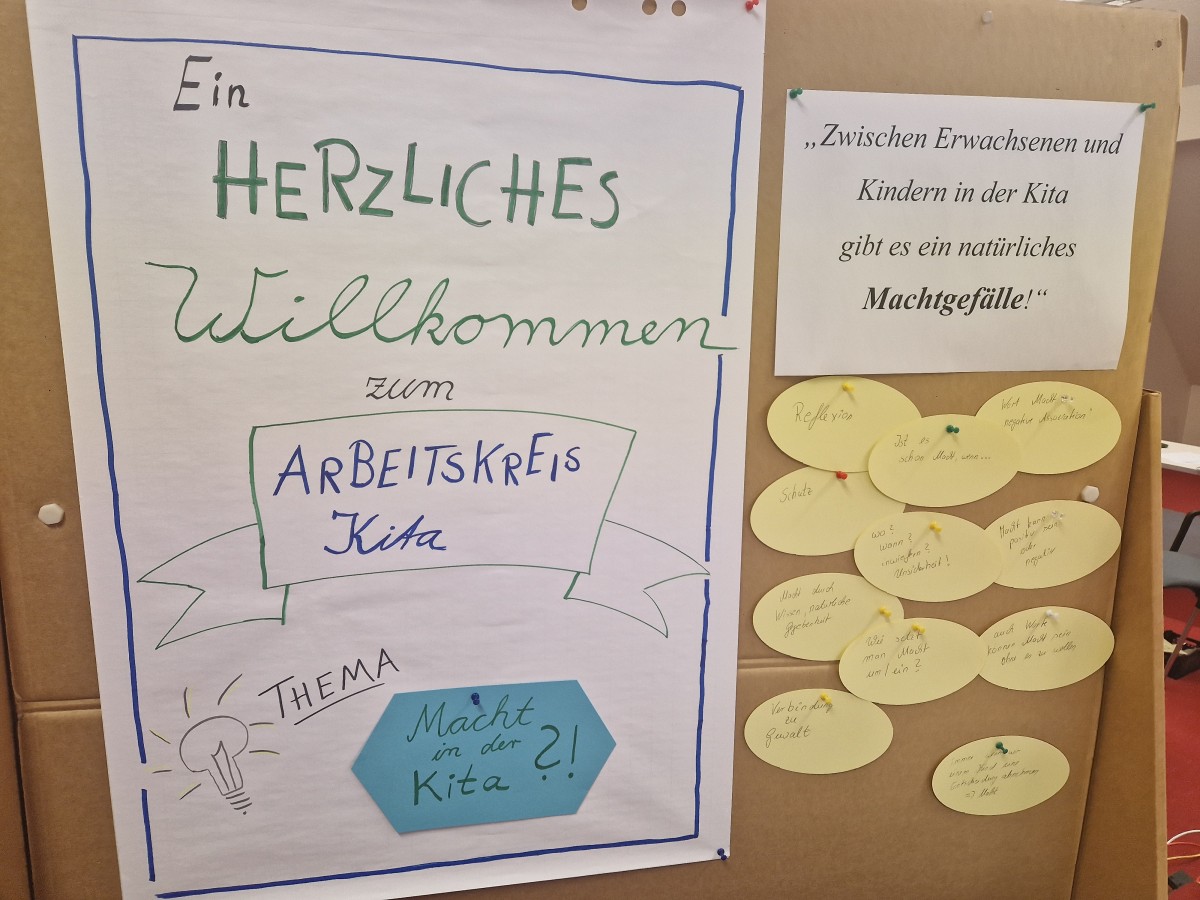 Ein
HERZLICHES
Willkommen
zum
ARBEITSKREIS
Kita
THEMA
Macht
in der
Kita ?!
„Zwischen Erwachsenen und
Kindern in der Kita
gibt es ein natürliches
Machtgefälle!“
Reflexion
Ist es
schon Macht, wenn...
Wort Macht
negative Assoziation
Schutz
wo?
wann?
inwiefern?
Unsicherheit!
Macht kann
positiv sein
oder
negativ
Macht durch
Wissen, natürliche
Gegebenheit
Wie setzt
man Macht
um / ein?
auch Worte
können Macht sein
ohne es zu wollen
Verbindung
zu
Gewalt
Immer wenn wir
einem Kind eine
Entscheidung abnehmen
=> Macht